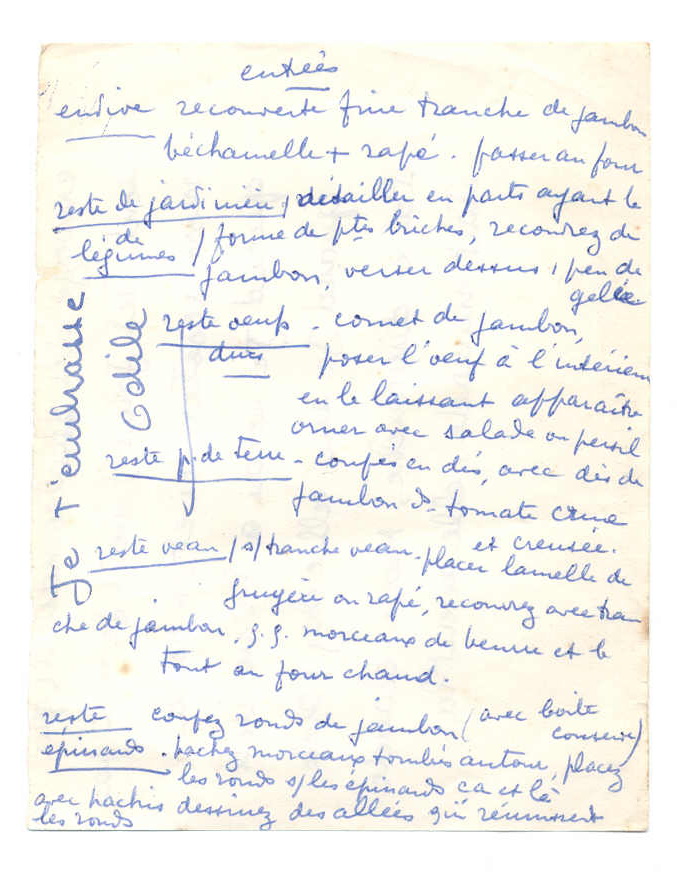 entrées
endive recouverte fine tranche de jambon
béchamelle + rapé. passer au four
reste de jardinière / détailler en parts ayant la
de
légumes / forme de ptes briches, recouvrez de
jambon, verser dessus 1 peu de
gelée
reste oeufs - cornet de jambon,
durs poser l'oeuf à l'intérieur
en le laissant apparaître
orner avec salade ou persil
reste p. de terre - coupées en dés, avec dés de
jambon ds tomate crue
et creusée.
reste veau / s/ tranche veau. placer lamelle de
gruyère ou rapé, recouvrez avec tran
che de jambon, q.q. morceaux de beurre et le
tout au four chaud.
reste coupez ronds de jambon (avec boîte
conserve)
épinards. hachez morceaux tombés autour, placez
les ronds s/ les épinards ca et là
avec hachis dessinez des allées qui réunissent
les ronds
Je t'embrasse
Odile